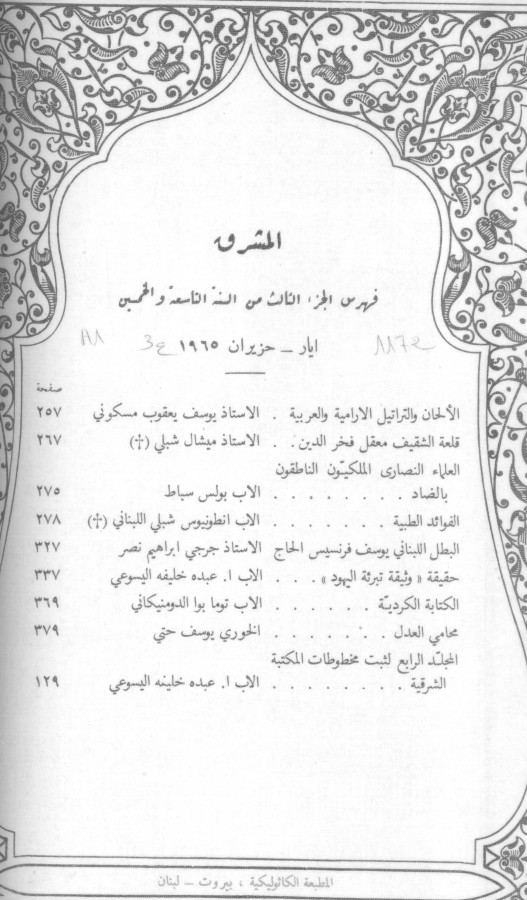 المشرق
فهرس الجزء الثالث من السنة التاسعة والخمسين
ايار – حزيران ١٩٦٥
1172
3ع
صفحة
الألحان والتراتيل الارامية والعربية . الاستاذ يوسف يعقوب مسكوني ٢٥٧
قلعة الشقيف معقل فخر الدين . . الاستاذ ميشال شبلي (†) ٢٦٧
العلماء النصارى الملكيّون الناطقون
بالضاد . . . . . . . . الاب بولس سباط ٢٧٥
الفوائد الطبية . . . . . . . الاب انطونيوس شبلي اللبناني (†) ٢٧٨
البطل اللبناني يوسف فرنسيس الحاج الاستاذ جرجي ابراهيم نصر ٣٢٧
حقيقة « وثيقة تبرئة اليهود » . . . الاب ا. عبده خليفه اليسوعي ٣٣٧
الكتابة الكرديّة . . . . . . الاب توما بوا الدومنيكاني ٣٦٩
محامي العدل . . . . . . . الخوري يوسف حتي ٣٧٩
المجلّد الرابع لثبت مخطوطات المكتبة
الشرقية . . . . . . . . الاب ا. عبده خليفه اليسوعي ١٢٩
المطبعة الكاثوليكية ، بيروت – لبنان